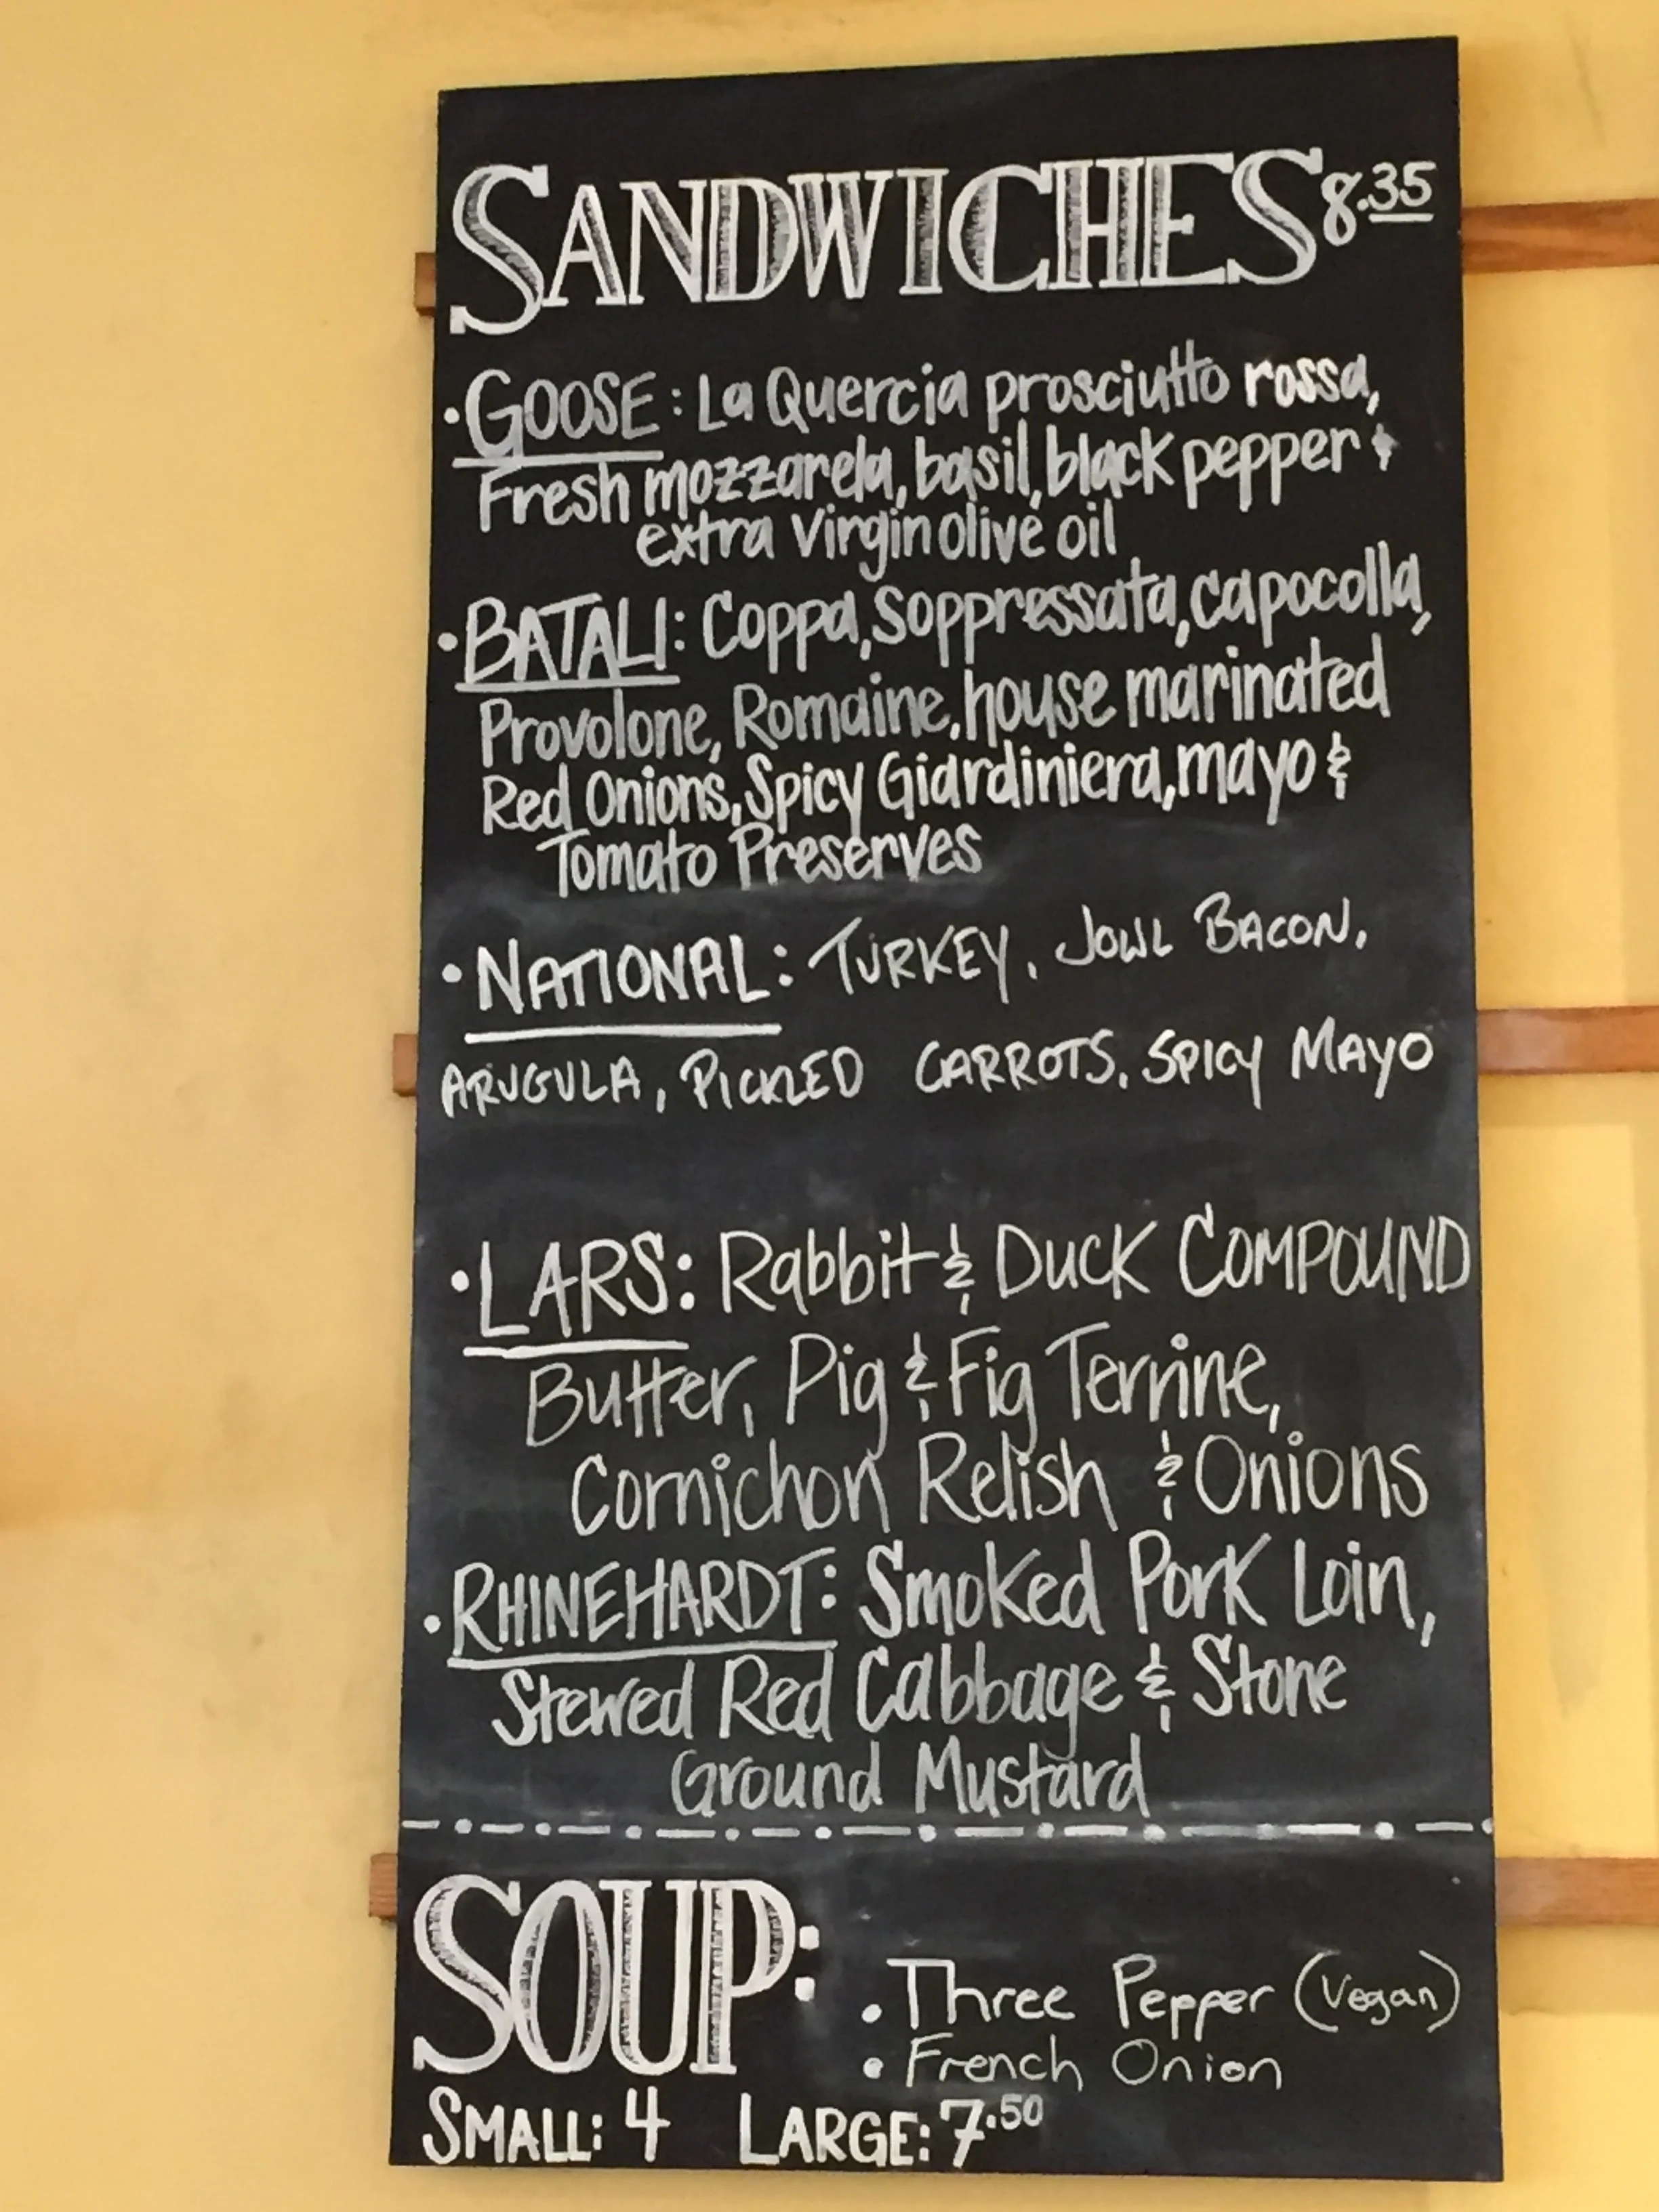 SANDWICHES 8.35
• GOOSE: La Quercia prosciutto rossa,
Fresh mozzarela, basil, black pepper &
extra virgin olive oil
• BATALI: Coppa, Soppressata, capocolla,
Provolone, Romaine, house marinated
Red Onions, Spicy Giardiniera, mayo &
Tomato Preserves
• NATIONAL: TURKEY, JOWL BACON,
ARUGULA, PICKLED CARROTS, SPICY MAYO
• LARS: Rabbit & DUCK COMPOUND
Butter, Pig & Fig Terrine,
Cornichon Relish & Onions
• RHINEHARDT: Smoked Pork Loin,
Stewed Red Cabbage & Stone
Ground Mustard
SOUP:
• Three Pepper (Vegan)
• French Onion
SMALL: 4 LARGE: 7.50